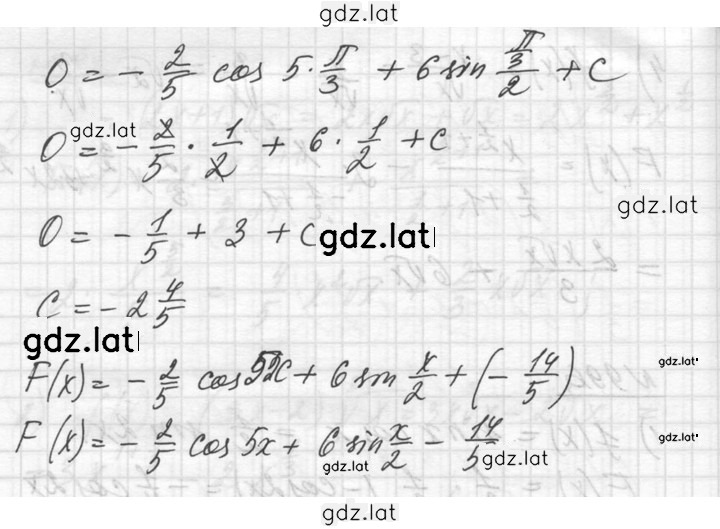 gdz.lat
0 = - 2/5 cos 5 · π/3 + 6 sin (π/3)/2 + C
gdz.lat
0 = - 2/5 · 1/2 + 6 · 1/2 + C
gdz.lat
0 = - 1/5 + 3 + C
gdz.lat
C = - 2 4/5
gdz.lat
F(x) = - 2/5 cos 5x + 6 sin x/2 + (- 14/5)
gdz.lat
F(x) = - 2/5 cos 5x + 6 sin x/2 - 14/5
gdz.lat
gdz.lat
gdz.lat
gdz.lat